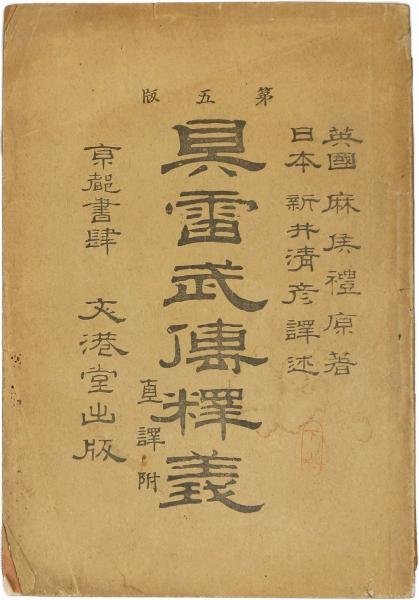 第五版
英國 麻侯禮 原著
日本 新井清彦 譯述
具雷武傳釋義
直譯附
京都書肆 文港堂出版